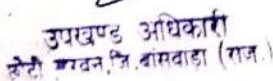 उपखण्ड अधिकारी
छोटी सरवन, जि. बांसवाड़ा (राज.)